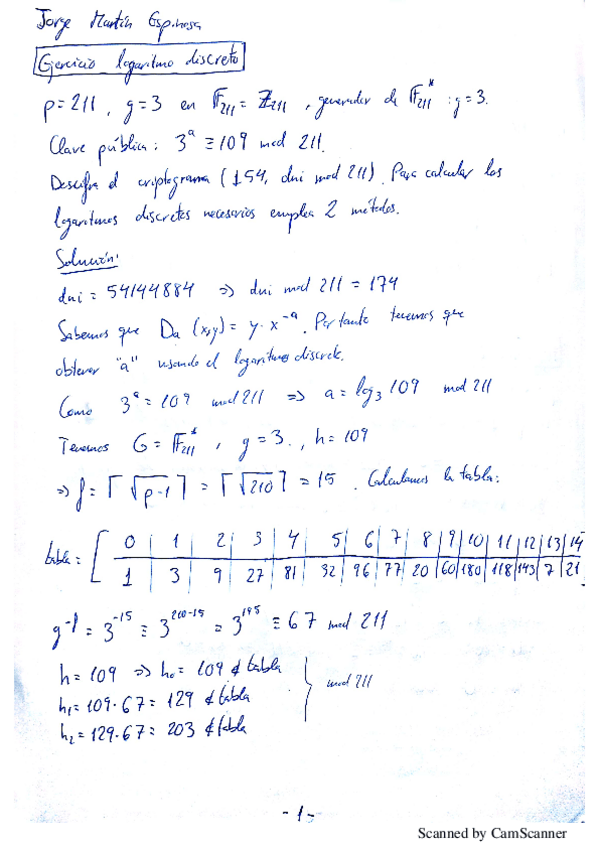 Jorge Martín Espinosa
Ejercicio logaritmo discreto
p=211, g=3 en F₂₁₁ = Z₂₁₁, generador de F₂₁₁* : g=3.
Clave pública: 3ᵃ ≡ 109 mod 211.
Descifra el criptograma (154, dni mod 211). Para calcular los
logaritmos discretos necesarios emplea 2 métodos.
Solución:
dni = 54144884 => dni mod 211 = 174
Sabemos que Da (x,y) = y · x⁻ᵃ. Por tanto tenemos que
obtener "a" usando el logaritmo discreto.
Como 3ᵃ = 109 mod 211 => a = log₃ 109 mod 211
Tenemos G = F₂₁₁*, g = 3., h = 109
=> f = ⌈√p-1⌉ = ⌈√210⌉ = 15. Calculamos la tabla:
tabla = [ 0 | 1 | 2 | 3 | 4 | 5 | 6 | 7 | 8 | 9 | 10 | 11 | 12 | 13 | 14
1 | 3 | 9 | 27 | 81 | 32 | 96 | 77 | 20 | 60 | 180 | 118 | 143 | 7 | 21
g⁻ᶠ = 3⁻¹⁵ ≡ 3²¹⁰⁻¹⁵ = 3¹⁹⁵ ≡ 67 mod 211
h = 109 => h₀ = 109 ∉ tabla
h₁ = 109·67 = 129 ∉ tabla } mod 211
h₂ = 129·67 = 203 ∉ tabla
- 1 -
Scanned by CamScanner